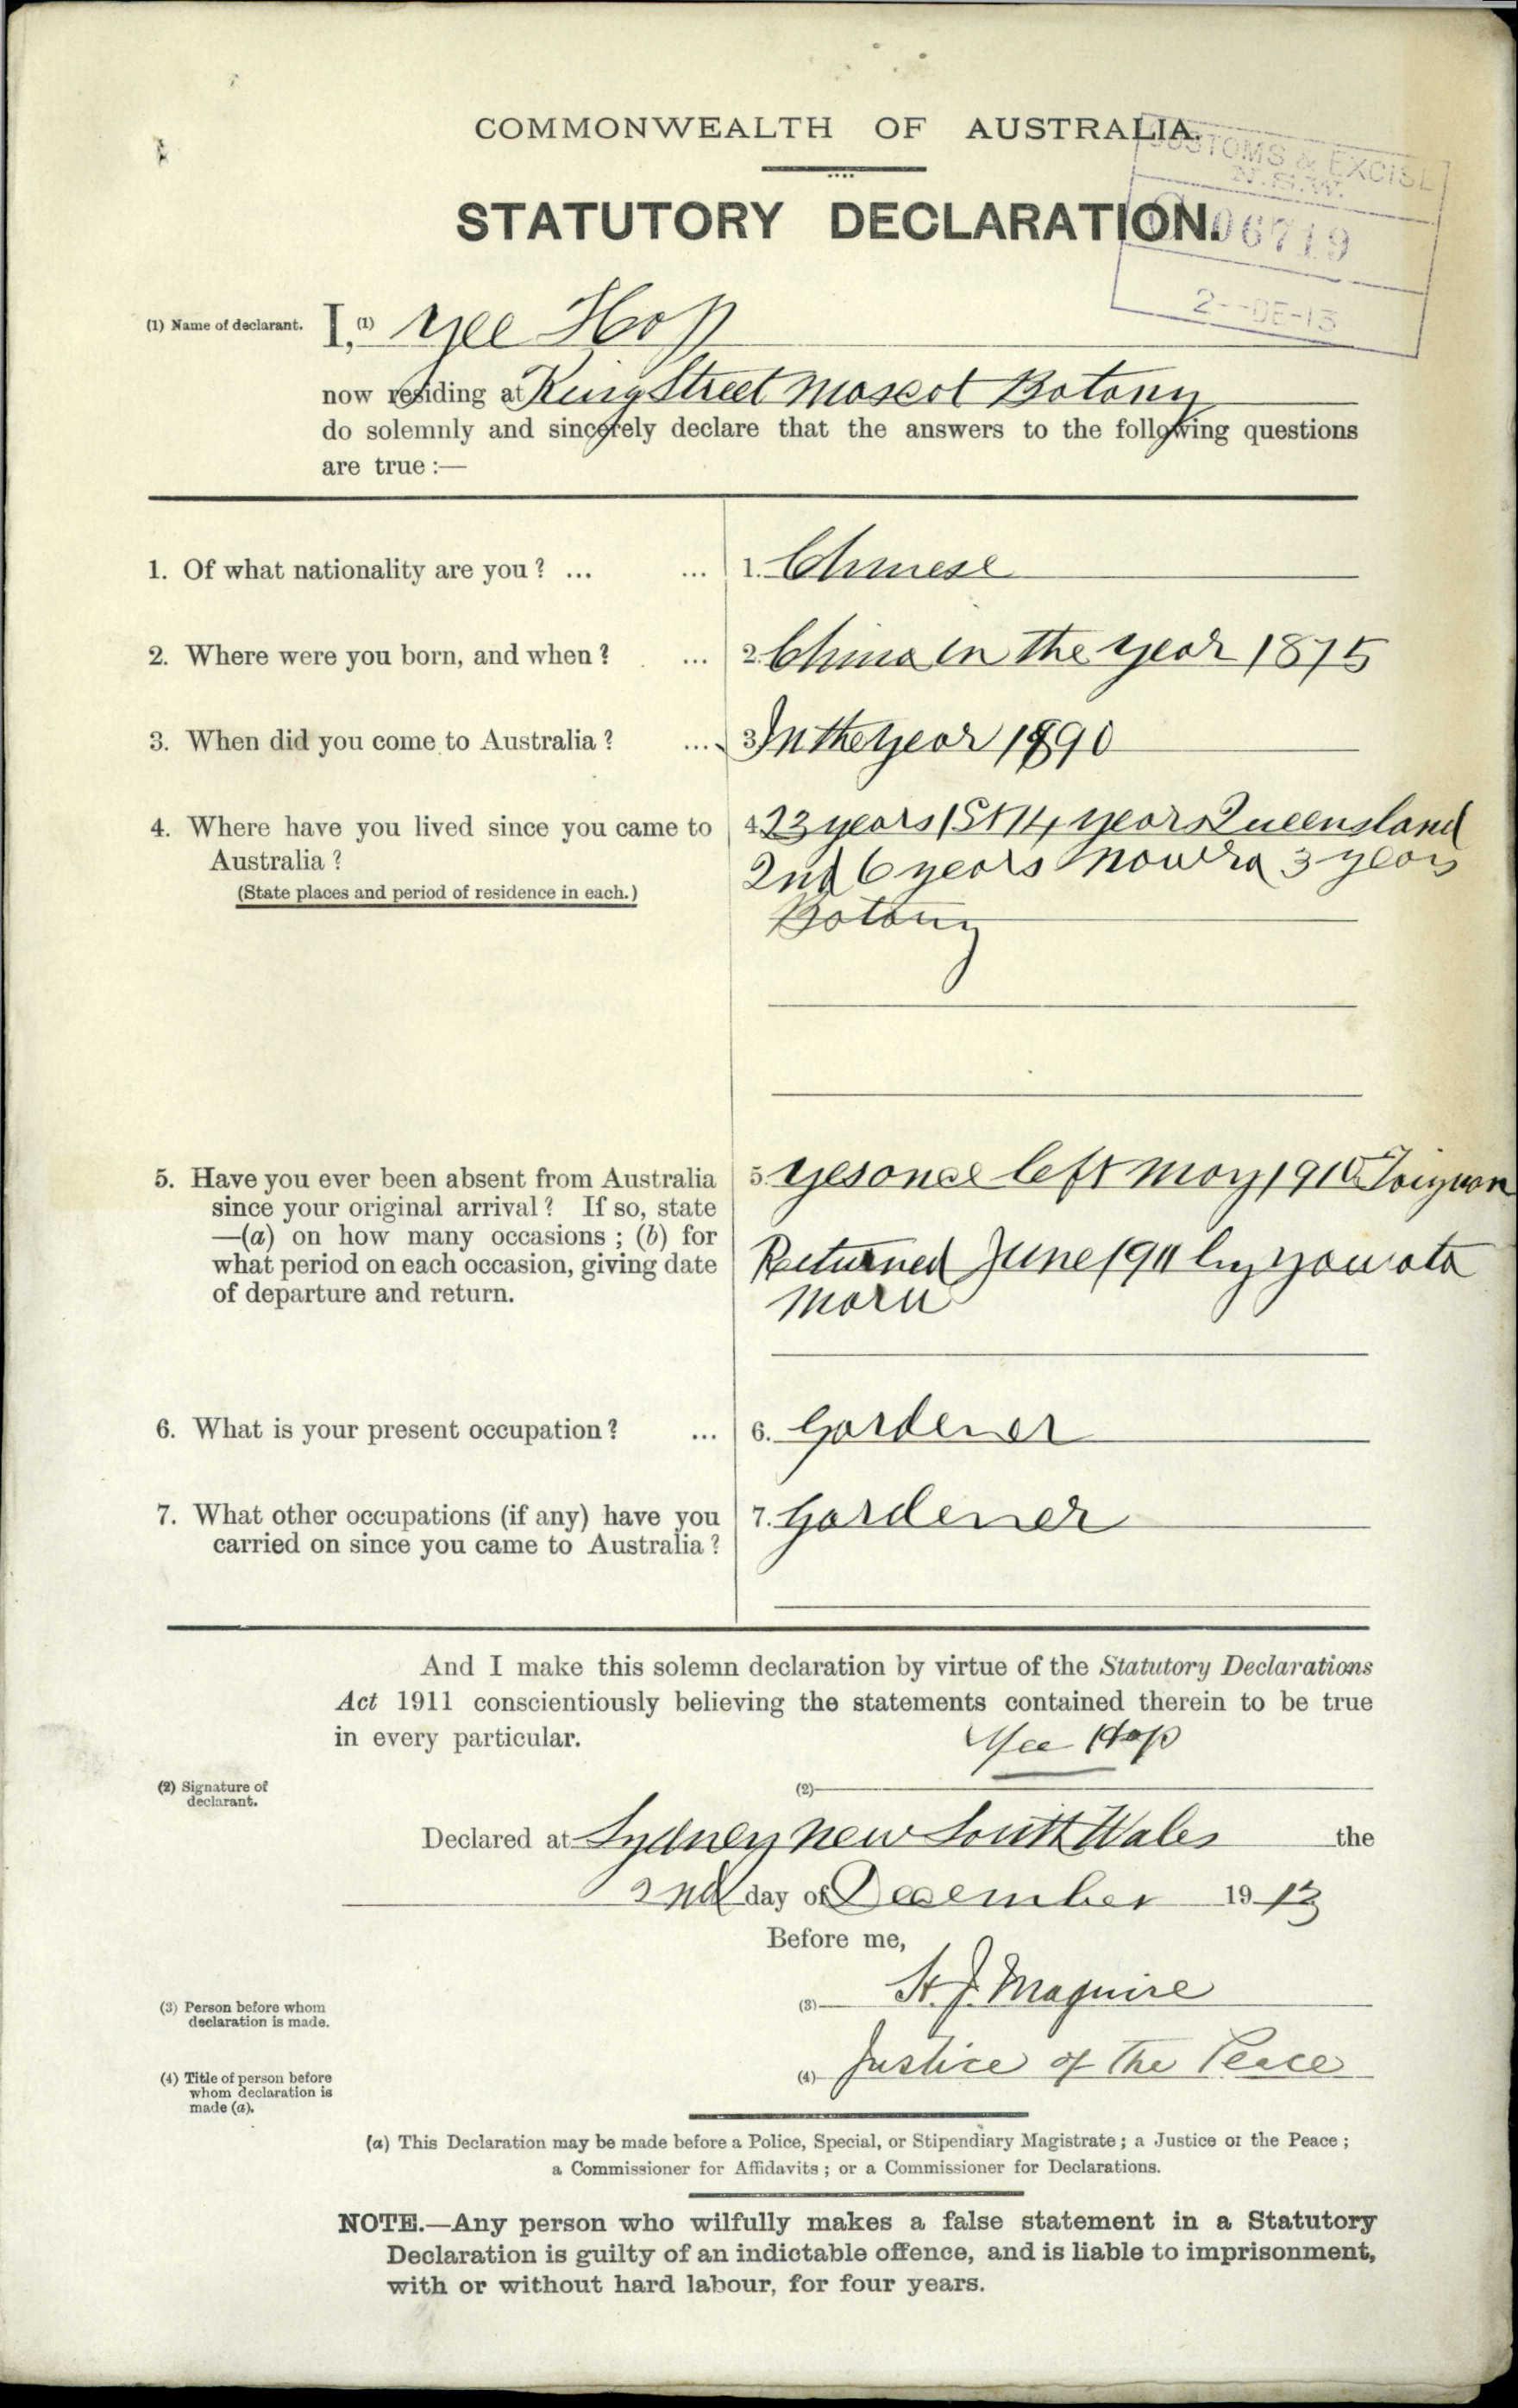 COMMONWEALTH OF AUSTRALIA.
CUSTOMS & EXCISE
N.S.W.
STATUTORY DECLARATION.
06719
2--DE-13
(1) Name of declarant. I, (1) Yee Hop
now residing at King Street Mascot Botany
do solemnly and sincerely declare that the answers to the following questions
are true :—
1. Of what nationality are you ? ... ... 1. Chinese
2. Where were you born, and when ? ... 2. China in the year 1875
3. When did you come to Australia ? ... 3. In the year 1890
4. Where have you lived since you came to 4. 23 years 1st 14 years Queensland
Australia ? 2nd 6 years Nowra 3 years
(State places and period of residence in each.)
Botany
5. Have you ever been absent from Australia 5. Yes once left May 1910 Taiyuan
since your original arrival ? If so, state
—(a) on how many occasions ; (b) for
what period on each occasion, giving date Returned June 1911 by Yawata
of departure and return. Maru
6. What is your present occupation ? ... 6. Gardener
7. What other occupations (if any) have you 7. Gardener
carried on since you came to Australia ?
And I make this solemn declaration by virtue of the Statutory Declarations
Act 1911 conscientiously believing the statements contained therein to be true
in every particular. Yee Hop
(2) Signature of (2)
declarant.
Declared at Sydney New South Wales the
2nd day of December 1913
Before me,
(3) H. J. Maguire
(3) Person before whom
declaration is made.
(4) Justice of the Peace
(4) Title of person before
whom declaration is
made (a).
(a) This Declaration may be made before a Police, Special, or Stipendiary Magistrate ; a Justice of the Peace ;
a Commissioner for Affidavits ; or a Commissioner for Declarations.
NOTE.—Any person who wilfully makes a false statement in a Statutory
Declaration is guilty of an indictable offence, and is liable to imprisonment,
with or without hard labour, for four years.